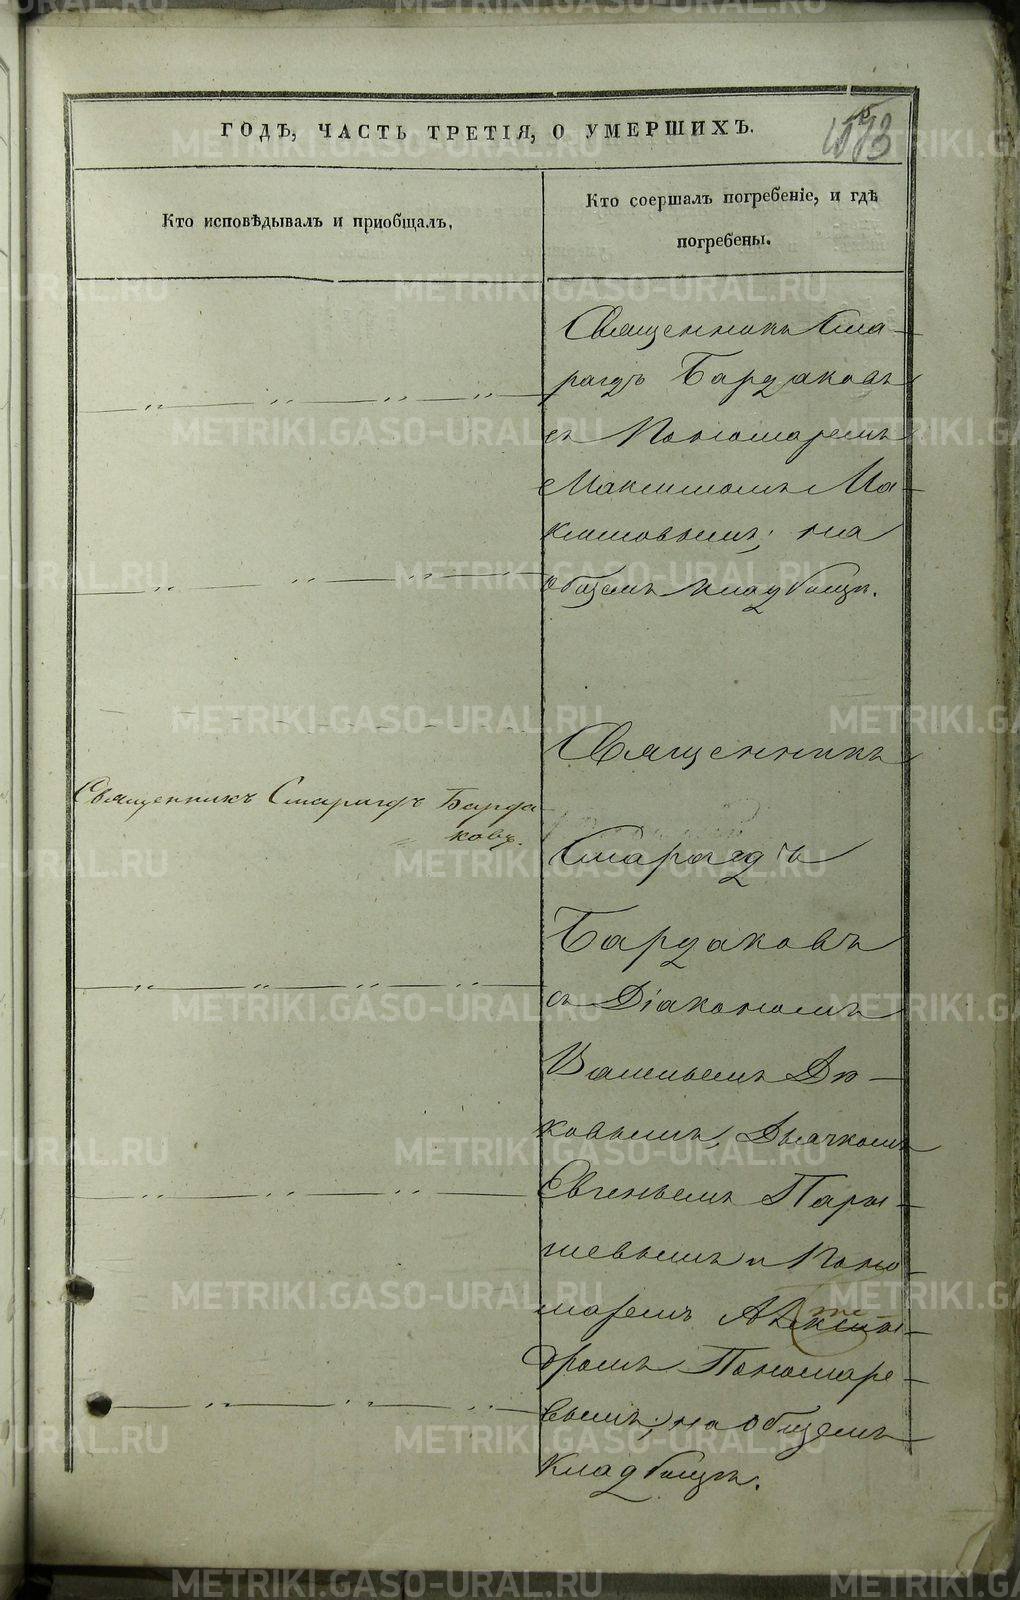 ГОДѢ, ЧАСТЬ ТРЕТІЯ, О УМЕРШИХЪ.
Кто исповѣдывалъ и приобщалъ,
Кто соершалъ погребеніе, и гдѣ
погребены.
Священникъ Сма-
рагдъ Бардаковъ
съ Пономаремъ
Максимомъ Ма-
ксимовымъ; на
общемъ кладбищѣ.
Священникъ Смарагдъ Барда
ковъ.
Священникъ
Смарагдъ
Бардаковъ
съ Діакономъ
Васильемъ
ковымъ, Дьячкомъ
Евгеньемъ Пары-
шевымъ и Поно-
маремъ
дромъ Пономаре-
вымъ; на общемъ
кладбищѣ.
METRIKI.GASO-URAL.RU